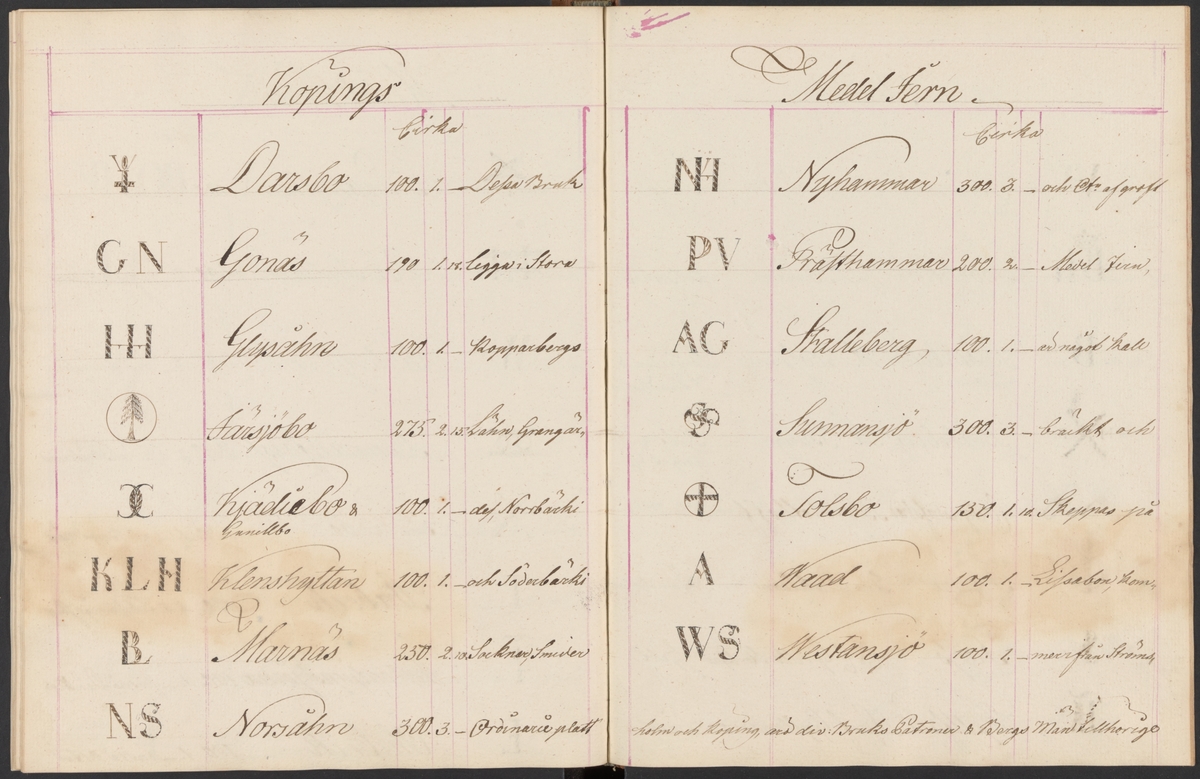 Köpings
Cirka
Darsbo 100. 1. — Deßa Bruk
G N Gonäs 190 1. 18. ligga i Stora
HH Glysåhn 100. 1. — Kopparbergs
Järsjöbo 275. 2. 15. Lähn, Grangär-
Kjädiebo &
Gunillbo 100. 1. — des, Norrbärki
K L H Klenshyttan 100. 1. — och Söderbärki
B Marnäs 250. 2. 10. Socknar, Smider
NS Norsåhn 300. 3. — Ordinarie platt
Medel Jern
Cirka
NH Nyhammar 300. 3. — och Ctn af groft
PV Prästhammar 200. 2. — Medel Jern,
AG Ställeberg, 100. 1. — är något kall
Sunnansjö 300. 3. — bräckt och
Tolsbo 150. 1. 10. Skeppas på
A Waad 100. 1. — Lissabon, kom-
WS Westansjö 100. 1. — mer ifrån Ströms-
holm och Köping, äro div: Bruks Patroner & Bergs Män tillhörige